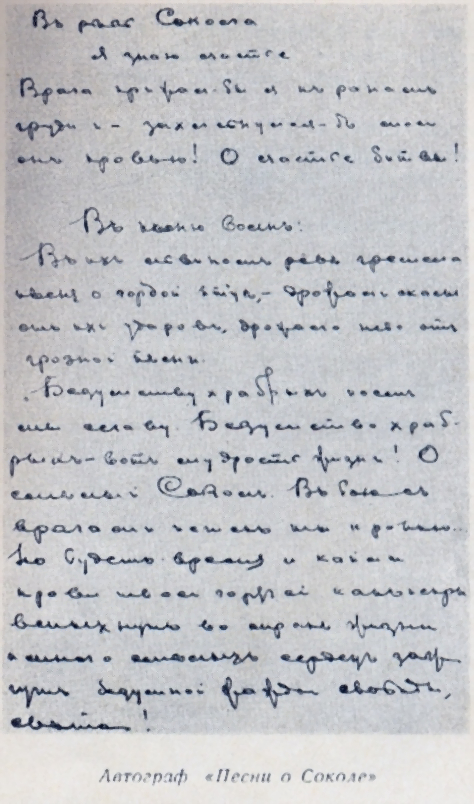 Въ речь Сокола
Я знаю счастье
Врага прижал-бы я къ ранамъ
груди и - захлебнулся-бъ моей
онъ кровью! О счастье битвы!
Въ песню волнъ:
Въ ихъ львиномъ ревѣ гремела
песня о гордой птице,- дрожали скалы
отъ ихъ ударовъ, дрожало небо отъ
грозной песни.
Безумству храбрыхъ поемъ
мы славу. Безумство храб-
рыхъ - вотъ мудрость жизни! О
смелый Соколъ. Въ бою съ
врагами истекъ ты кровью...
Но будетъ время и капли
крови твоей горячей какъ искры
вспыхнутъ во мраке жизни
и много смелыхъ сердецъ заж-
гутъ безумной жаждой свободы,
света!
Автограф «Песни о Соколе»